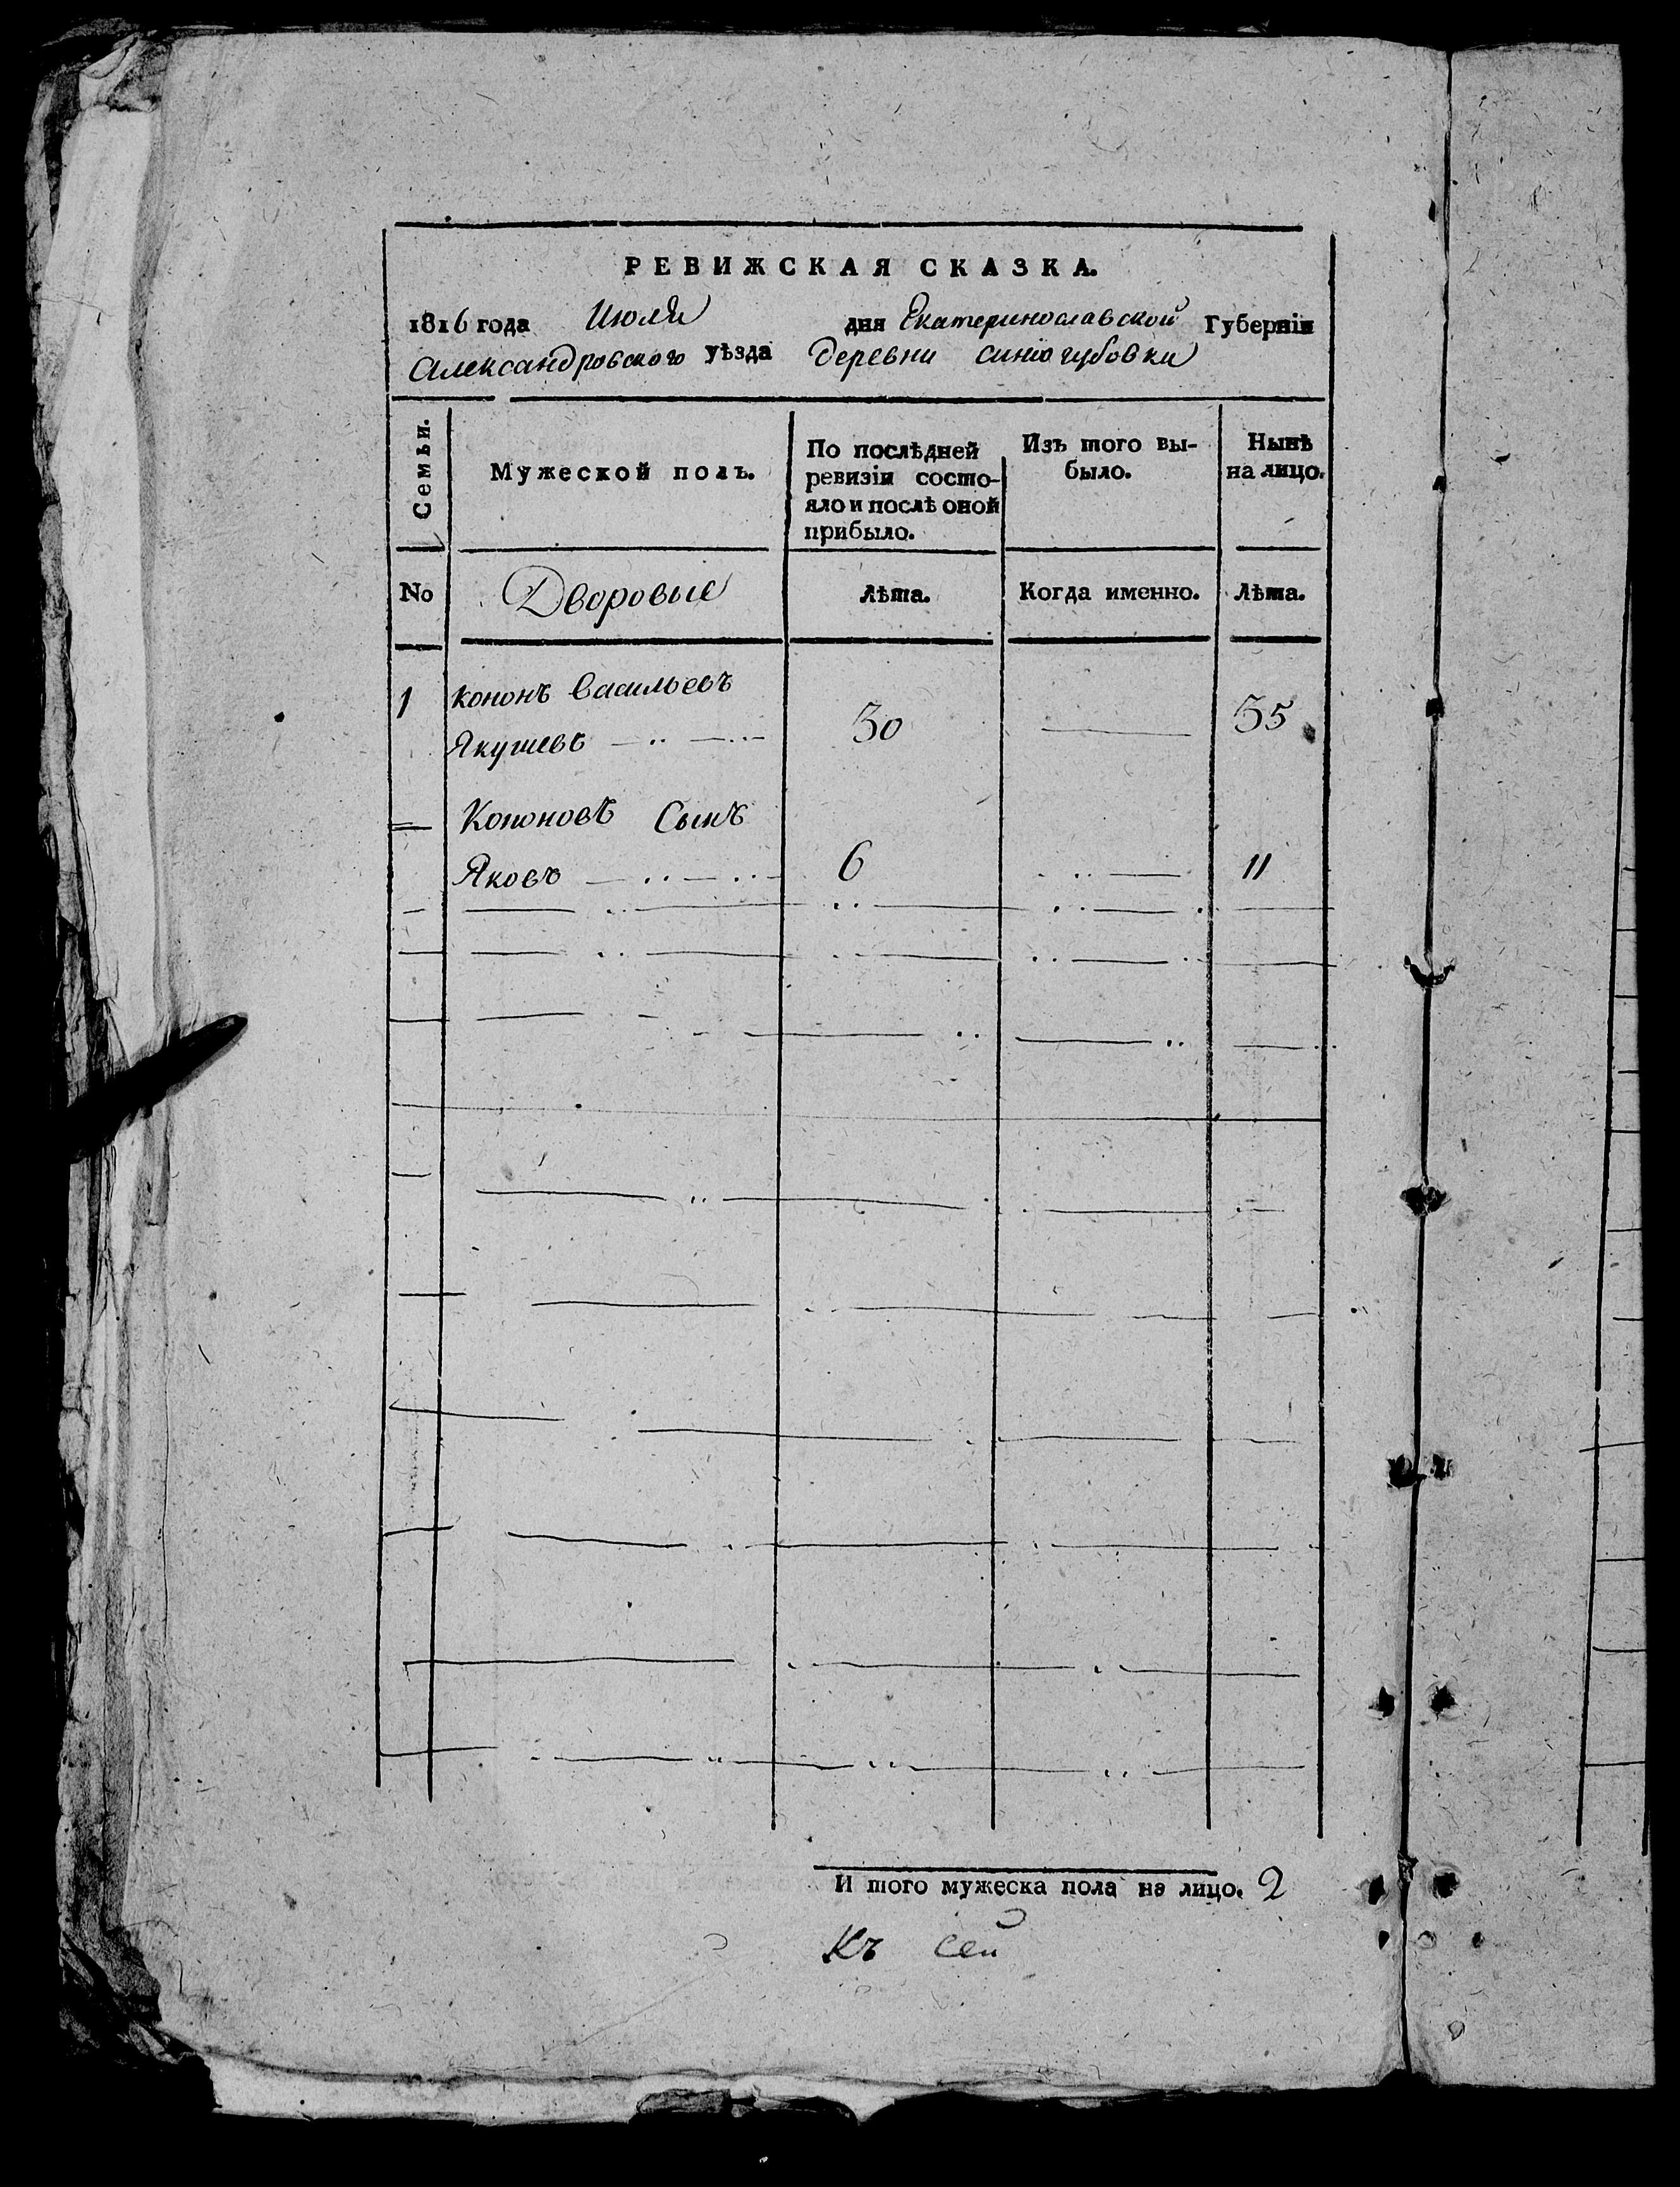 РЕВИЖСКАЯ СКАЗКА.
1816 года Июля дня Екатеринославской Губерніи
Александровского уѣзда деревни синюгубовки
Семьи.
Мужеской полъ.
По послѣдней ревизіи состо-
яло и послѣ оной
прибыло.
Изъ того вы-
было.
Нынѣ
на лицо.
No Дворовые Лѣта. Когда именно. Лѣта.
1 кононъ Васильевъ
Якушевъ 30 35
Кононовъ Сынъ
Яковъ 6 11
И того мужеска пола на лицо. 2
Къ сей